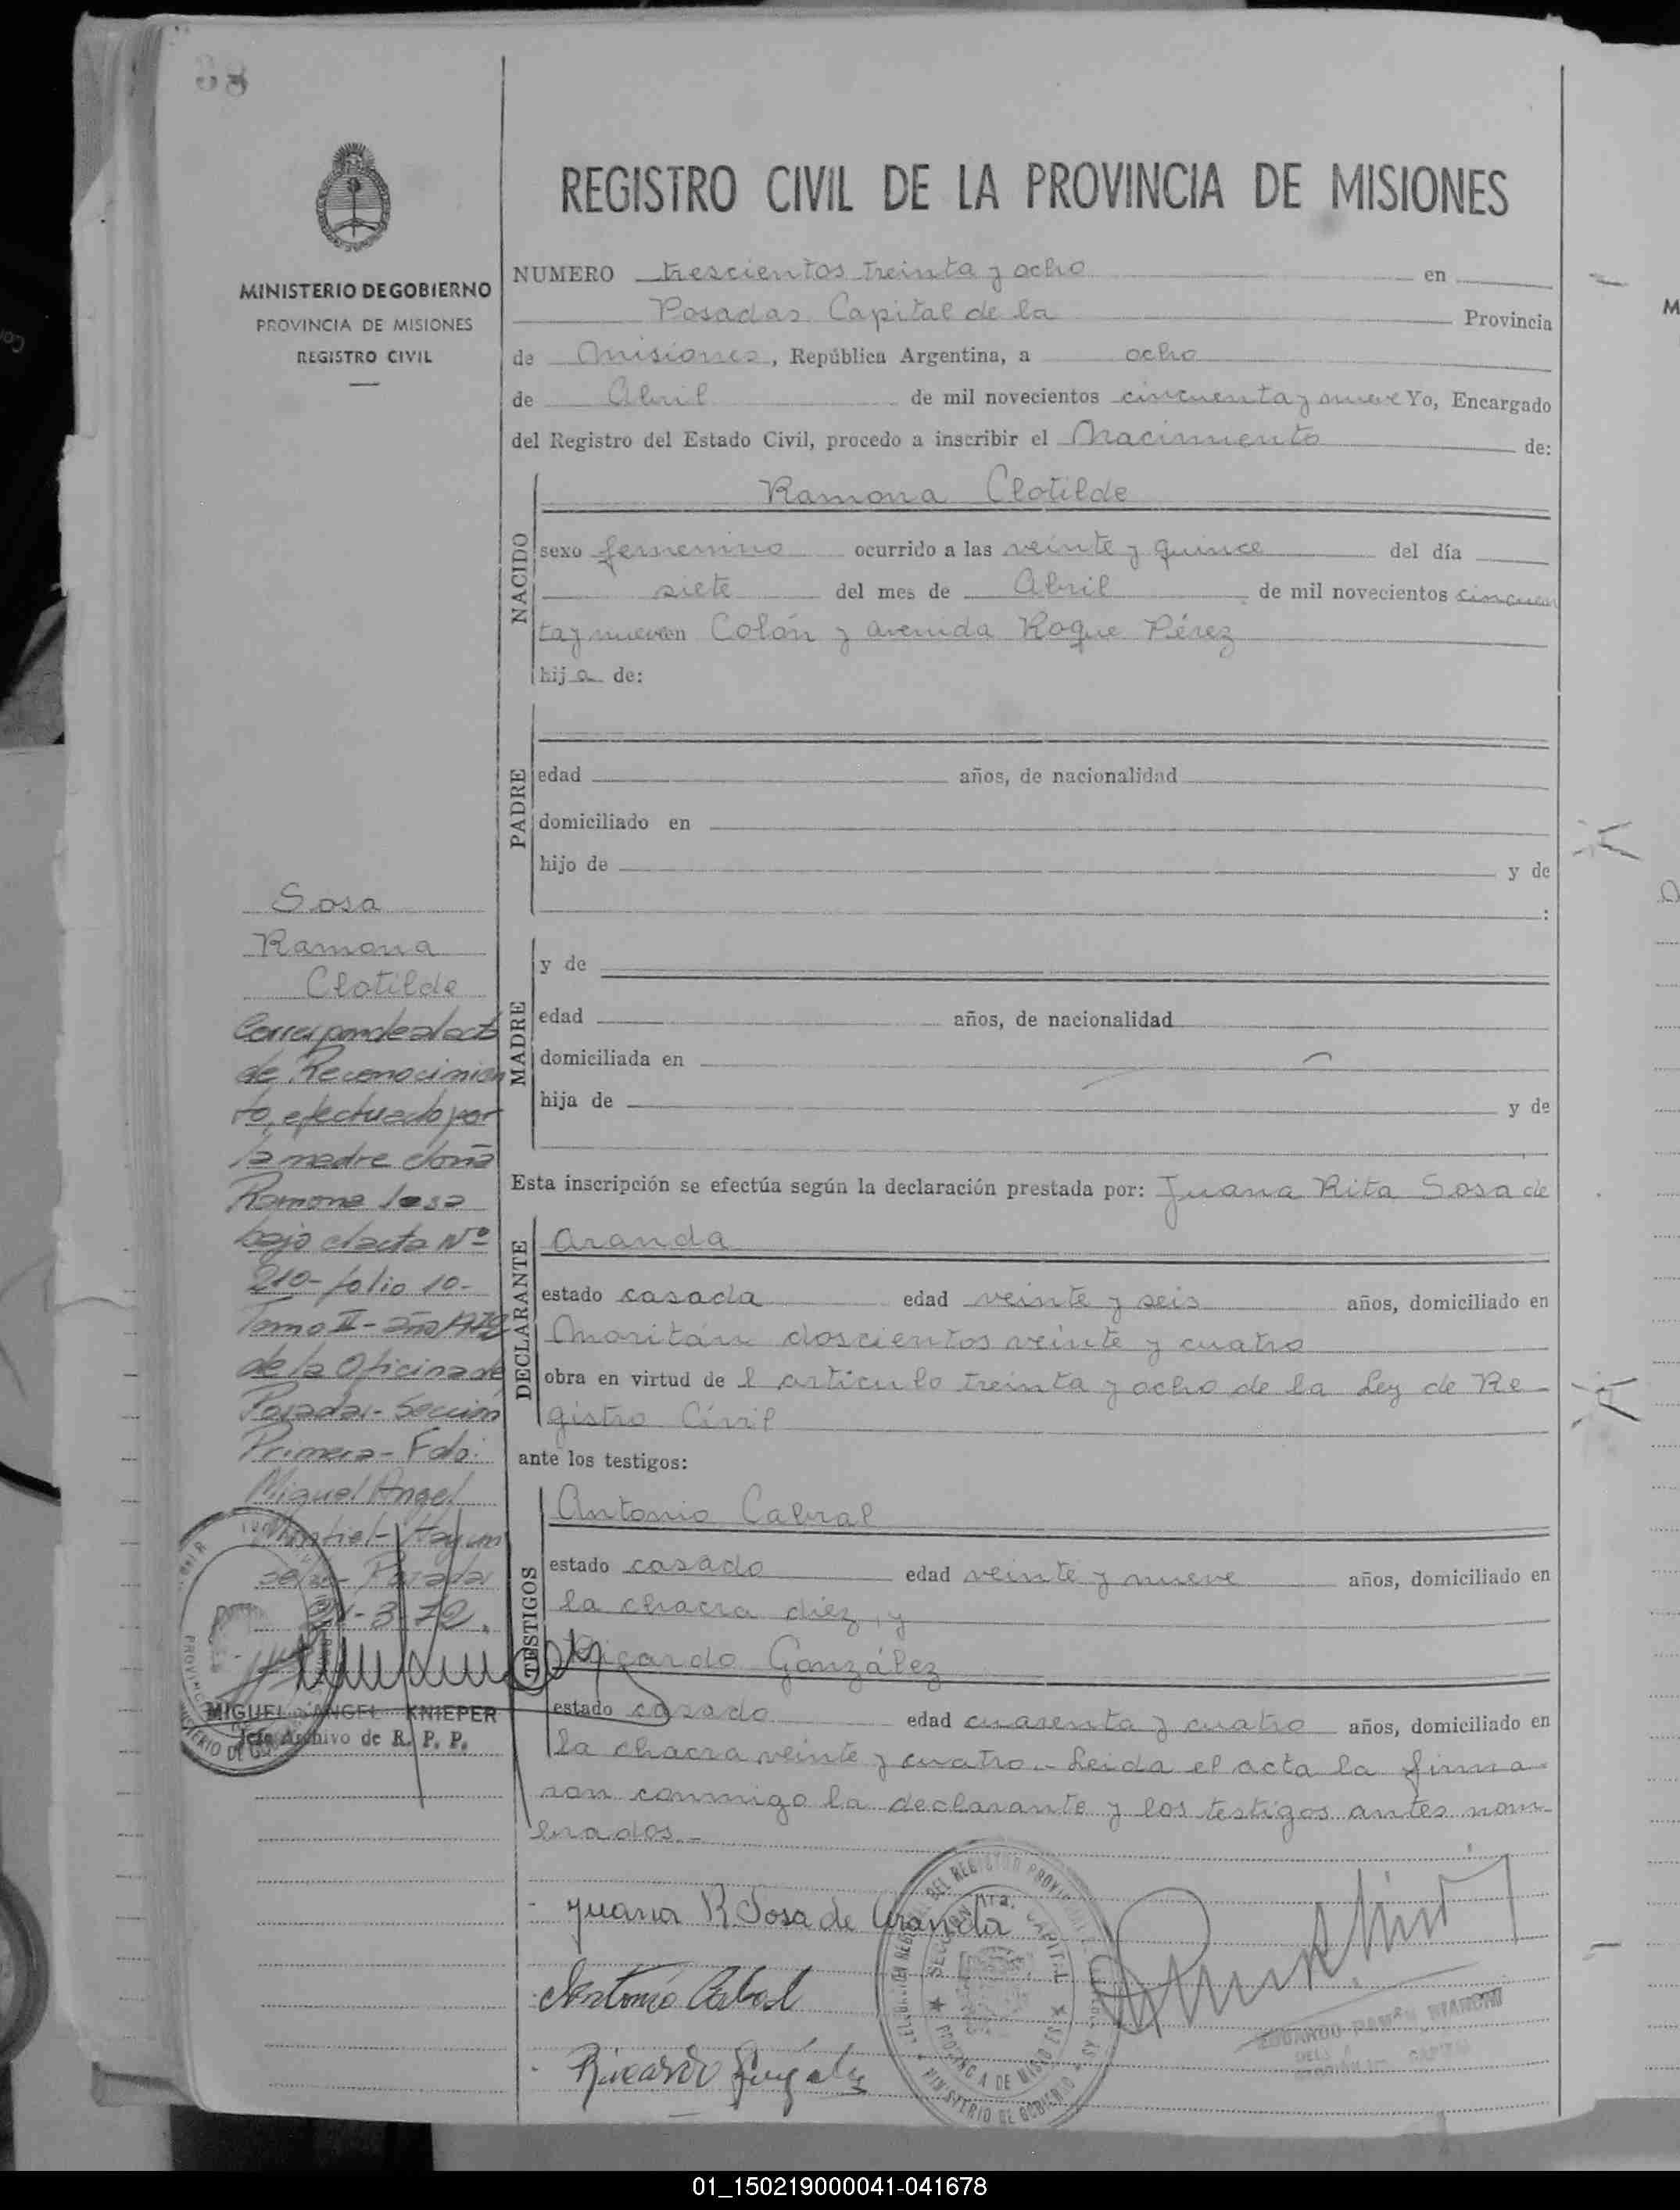 REGISTRO CIVIL DE LA PROVINCIA DE MISIONES
MINISTERIO DE GOBIERNO
PROVINCIA DE MISIONES
REGISTRO CIVIL
NUMERO trescientos treinta y ocho en
Posadas Capital de la Provincia
de Misiones, República Argentina, a ocho
de Abril de mil novecientos cincuenta y nueve Yo, Encargado
del Registro del Estado Civil, procedo a inscribir el Nacimiento de:
NACIDO
Ramona Clotilde
sexo femenino ocurrido a las veinte y quince del día
siete del mes de Abril de mil novecientos cincuen
ta y nueve en Colón y avenida Roque Pérez
hija de:
PADRE
edad años, de nacionalidad
domiciliado en
hijo de y de
:
MADRE
y de
edad años, de nacionalidad
domiciliada en
hija de y de
Esta inscripción se efectúa según la declaración prestada por: Juana Rita Sosa de
DECLARANTE
Aranda
estado casada edad veinte y seis años, domiciliado en
doscientos veinte y cuatro
obra en virtud del artículo treinta y ocho de la Ley de Re
gistro Civil
ante los testigos:
TESTIGOS
Antonio Cabral
estado casado edad veinte y nueve años, domiciliado en
la chacra diez, y
Ricardo González
estado casado edad cuarenta y cuatro años, domiciliado en
la chacra veinte y cuatro.- Leida el acta la firma
ron conmigo la declarante y los testigos antes nom-
brados.-
Juana R Sosa de Aranda
Antonio Cabral
Ricardo González
Sosa
Ramona
Clotilde
Corresponde al acta
de Reconocimien
to, efectuado por
la madre doña
Ramona Sosa
bajo el acta Nº
210- folio 10-
Tomo II- año 1972
de la Oficina de
Posadas- Sección
Primera- Fdo:
Miguel Angel
Montiel- Hay un
sello- Posadas
21-3-72.
MIGUEL ANGEL KNIEPER
Jefe Archivo de R. P. P.
EDUARDO RAMON BIANCHI
01_150219000041-041678